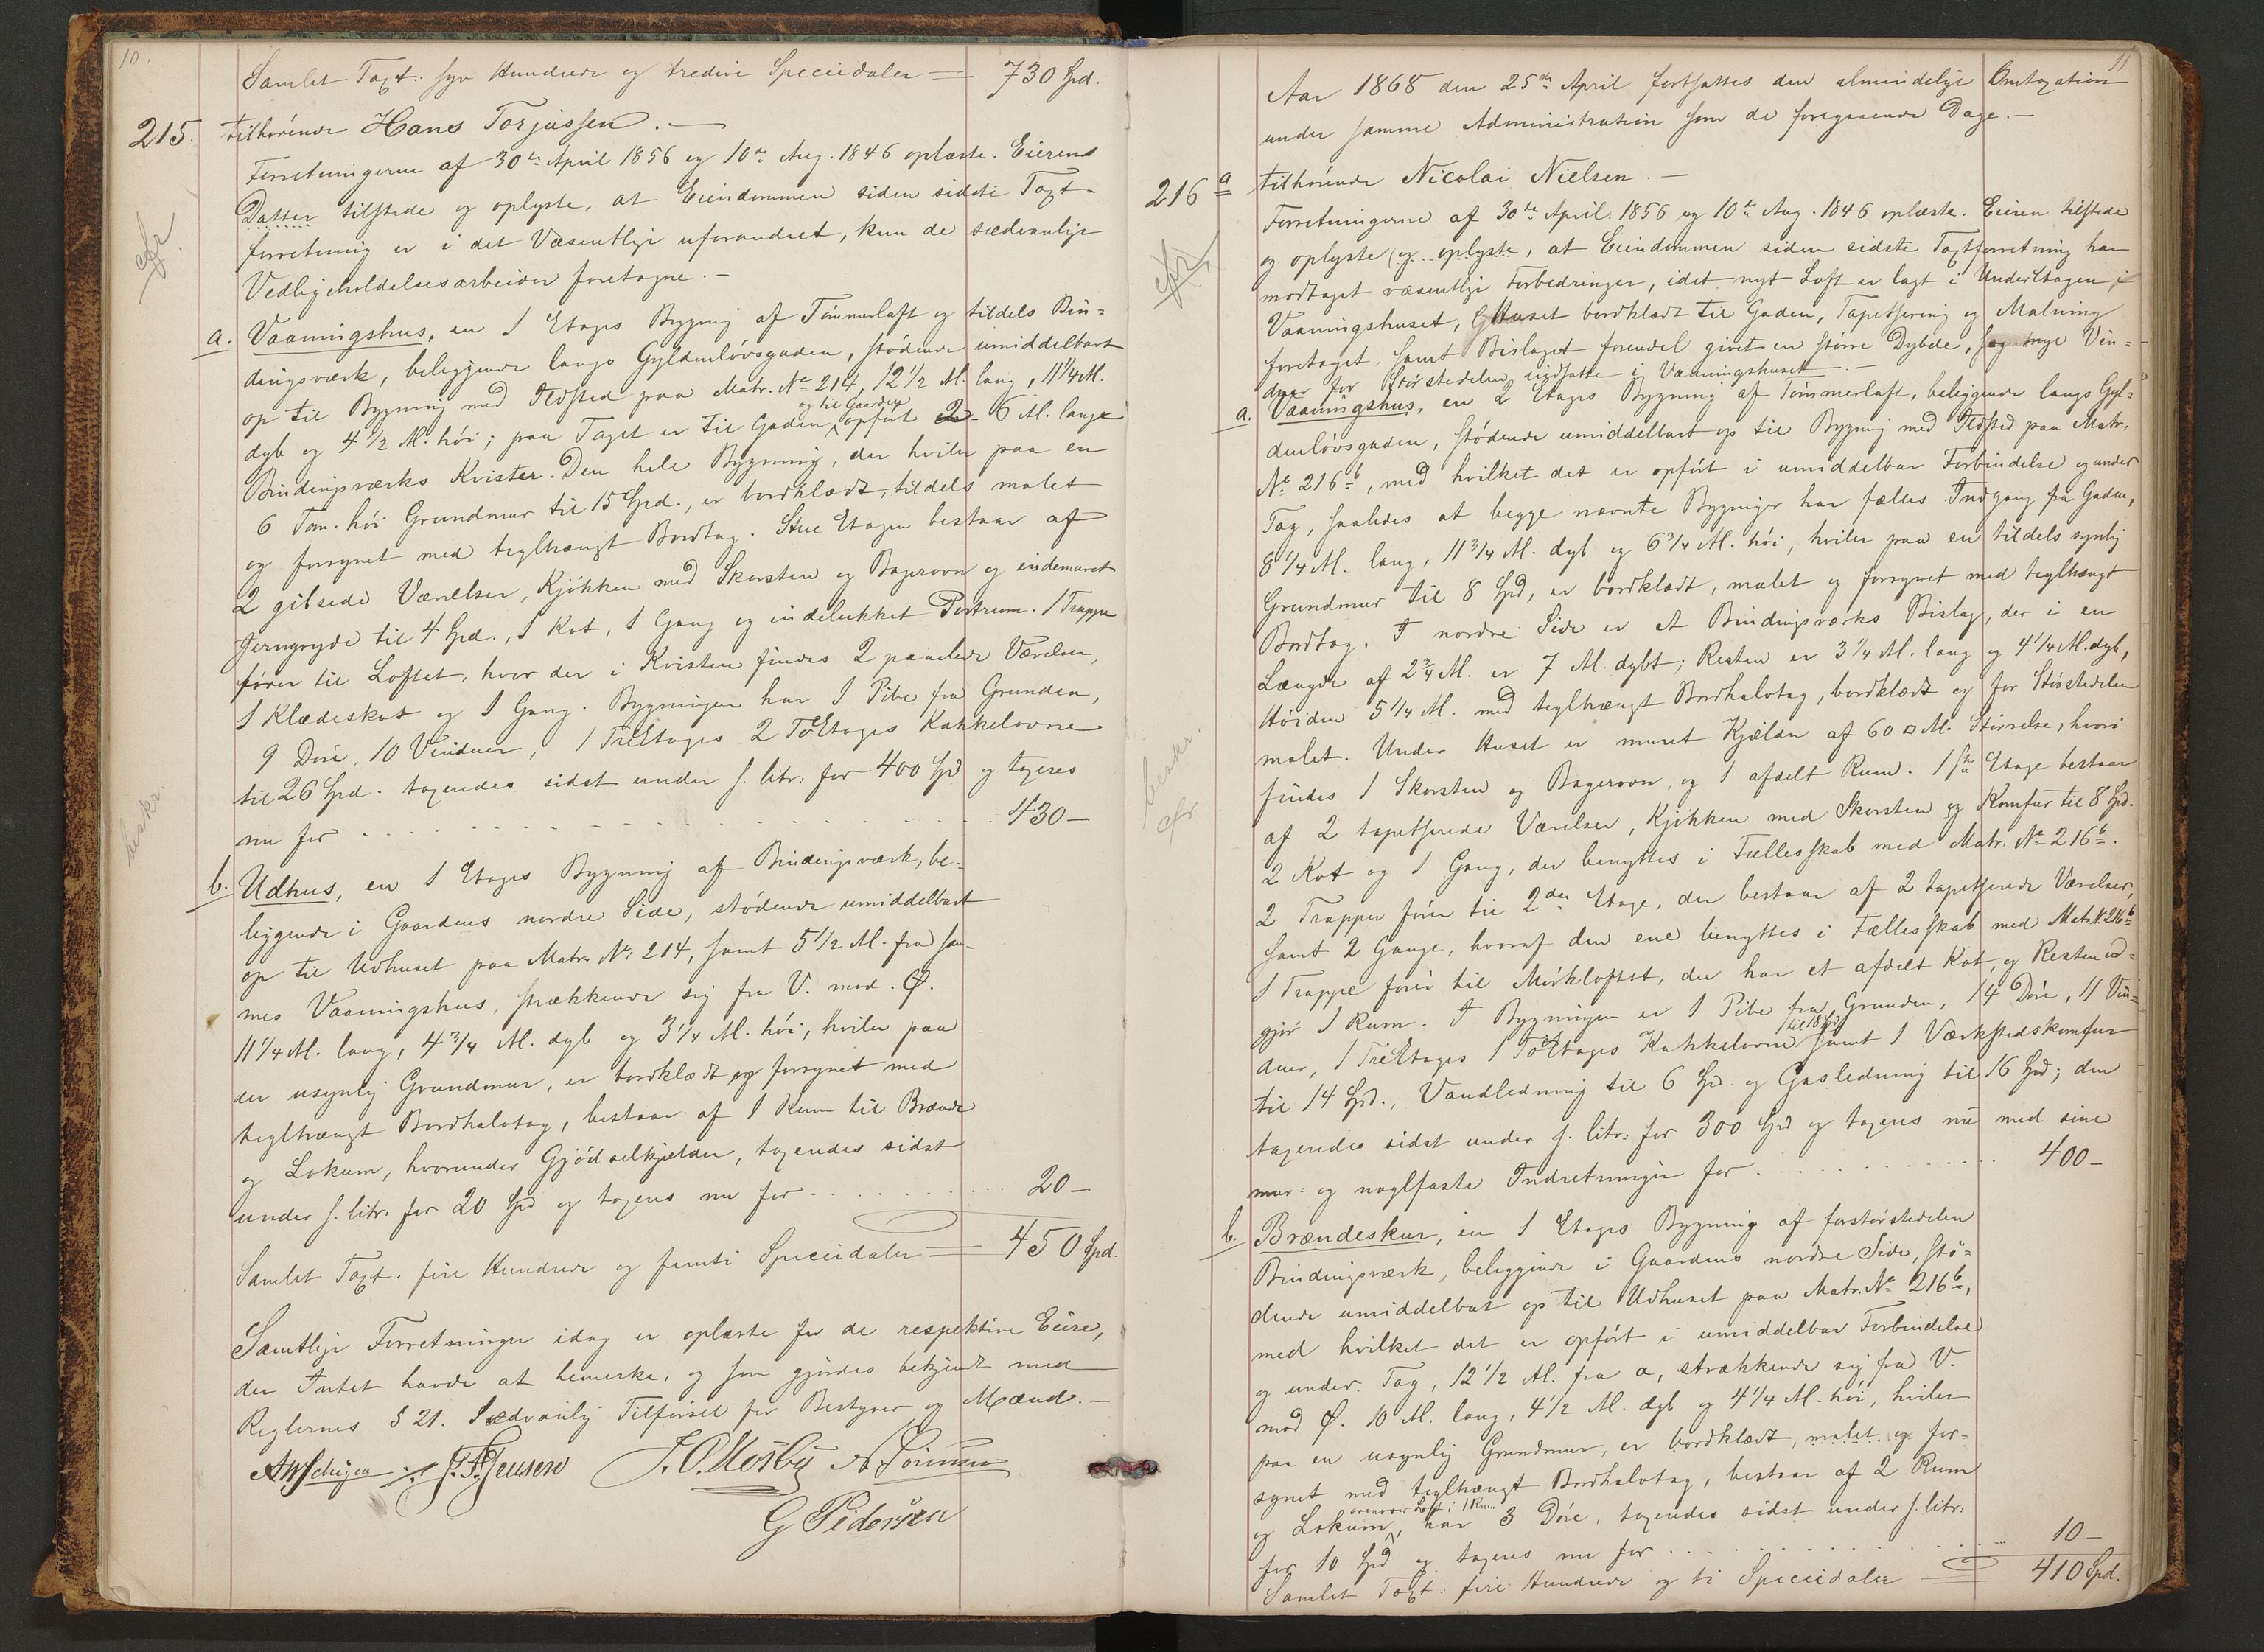 10.
Samlet Taxt: syv Hundrede og tredive Speciedaler = 730 Spd.
215. tilhørende Hans Torjussen. —
Forretningerne af 30te April 1856 og 10de Aug. 1846 oplæste. Eierens
Datter tilstede og oplyste, at Eiendommen siden sidste Taxt-
forretning er i det Væsentlige uforandret, kun de sædvanlige
Vedligeholdelsesarbeider foretagne. —
cfr
a. Vaaningshus, en 1 Etages Bygning af Tømmerlaft og tildels Bin=
dingsværk, beliggende langs Gyldenløvsgaden, stødende umiddelbart
op til Bygning med Ildsted paa Matr. No 214, 12 1/2 Al. lang, 11 1/4 Al.
dyb og 4 1/2 Al. høi; paa Taget er til Gaden og til Gaarden opført 2 6 Al. lange
Bindingsværks Kvister. Den hele Bygning, der hviler paa en
6 Tom. høi Grundmur til 15 Spd., er bordklædt, tildels malet
og forsynet med teglhængt Bordtag. Stue Etagen bestaar af
2 gibsede Værelser, Kjøkken med Skorsten og Bagerovn og indemuret
Jerngryde til 4 Spd., 1 Kot, 1 Gang og indelukket Portrum. 1 Trappe
fører til Loftet, hvor der i Kvisten findes 2 panelede Værelser,
1 Klædeskot og 1 Gang. Bygningen har 1 Pibe fra Grunden,
9 Døre, 10 Vinduer, 1 TreEtages 2 ToEtages Kakkelovne
til 26 Spd. taxeredes sidst under s. litr. for 400 Spd og taxeres
nu for . . . . . . . . 430 —
beskr.
b. Udhus, en 1 Etages Bygning af Bindingsværk, be-
liggende i Gaardens nordre Side, stødende umiddelbart
op til Udhuset paa Matr. No 214, samt 5 1/2 Al. fra sam-
mes Vaaningshus, strækkende sig fra V. mod Ø.
11 1/4 Al. lang, 4 3/4 Al. dyb og 3 1/4 Al. høi, hviler paa
en usynlig Grundmur, er bordklædt og forsynet med
teglhængt Bordhalvtag, bestaar af 1 Rum til Brænde
og Lokum, hvorunder Gjødselkjelder, taxeredes sidst
under s. litr. for 20 Spd og taxeres nu for . . . . . 20 —
Samlet Taxt. fire Hundrede og femti Speciedaler = 450 Spd.
Samtlige Forretninger idag er oplæste for de respektive Eiere,
der Intet havde at bemerke, og som gjordes bekjendt med
Reglernes § 21. Sædvanlig Tilførsel for Bestyrer og Mænd. —
J. P. Jensen J. O. Mosby A. Sørensen
G Pedersen
11
Aar 1868 den 25de April fortsattes den almindelige Omtaxation
under samme Administration som de foregaaende Dage. —
216 a tilhørende Nicolai Nielsen. —
Forretningerne af 30te April 1856 og 10de Aug. 1846 oplæste. Eieren tilstede
og oplyste (og oplyste, at Eiendommen siden sidste Taxtforretning har
cfr
modtaget væsentlige Forbedringer, idet nyt Loft er lagt i UnderEtagen i
Vaaningshuset, Huset bordklædt til Gaden, Tapetsering og Malning
foretaget, samt Bislaget forendel givet en større Dybde, nye Vin=
duer for Størstedelen indsatte i Vaaningshuset —
a. Vaaningshus, en 2 Etages Bygning af Tømmerlaft, beliggende langs Gyl=
denløvsgaden, stødende umiddelbart op til Bygning med Ildsted paa Matr.
No 216 b, med hvilket det er opført i umiddelbar Forbindelse og under
Tag, saaledes at begge nævnte Bygninger har fælles Indgang fra Gaden,
8 1/4 Al. lang, 11 3/4 Al. dyb og 6 3/4 Al. høi, hviler paa en tildels synlig
Grundmur til 8 Spd, er bordklædt, malet og forsynet med teglhængt
Bordtag. I nordre Side er et Bindingsværks Bislag, der i en
Længde af 2 3/4 Al. er 7 Al. dybt; Resten er 3 1/4 Al. lang og 4 1/4 Al. dyb,
Høiden 5 1/4 Al. med teglhængt Bordhalvtag, bordklædt og for Størstedelen
malet. Under Huset er muret Kjælder af 60 □ Al. Størrelse, hvori
beskr.
cfr
findes 1 Skorsten og Bagerovn, og 1 afdelt Rum. 1ste Etage bestaar
af 2 tapetserede Værelser, Kjøkken med Skorsten og Komfur til 8 Spd.
2 Kot og 1 Gang, der benyttes i Fællesskab med Matr. No 216 b.
2 Trapper fører til 2den Etage, der bestaar af 2 tapetserede Værelser,
samt 2 Gange, hvoraf den ene benyttes i Fællesskab med Matr. No 216 b
1 Trappe fører til Mørkloftet, der har et afdelt Kot, og Resten ud=
gjør 1 Rum. I Bygningen er 1 Pibe fra Grunden, 14 Døre, 11 Vin=
duer, 1 TreEtages 1 ToEtages Kakkelovne til 18 Spd samt 1 Værkstedskomfur
til 14 Spd., Vandledning til 6 Spd. og Gasledning til 16 Spd; den
taxeredes sidst under s. litr. for 300 Spd og taxeres nu med sine
mur= og naglfaste Indretninger for . . . . . . 400 —
b. Brændeskur, en 1 Etages Bygning af forstørstedelen
Bindingsværk, beliggende i Gaardens nordre Side, stø=
dende umiddelbart op til Udhuset paa Matr. No 216 b,
med hvilket det er opført i umiddelbar Forbindelse
og under Tag, 12 1/2 Al. fra a, strækkende sig fra V.
mod Ø. 10 Al. lang, 4 1/2 Al. dyb og 4 1/4 Al. høi, hviler
paa en usynlig Grundmur, er bordklædt, malet og for=
synet med teglhængt Bordhalvtag, bestaar af 2 Rum
og Lokum, ovenover Loft i 1 Rum har 3 Døre, taxeredes sidst under s. litr.
for 10 Spd og taxeres nu for . . . . . . 10 —
Samlet Taxt: fire Hundrede og ti Speciedaler = 410 Spd.